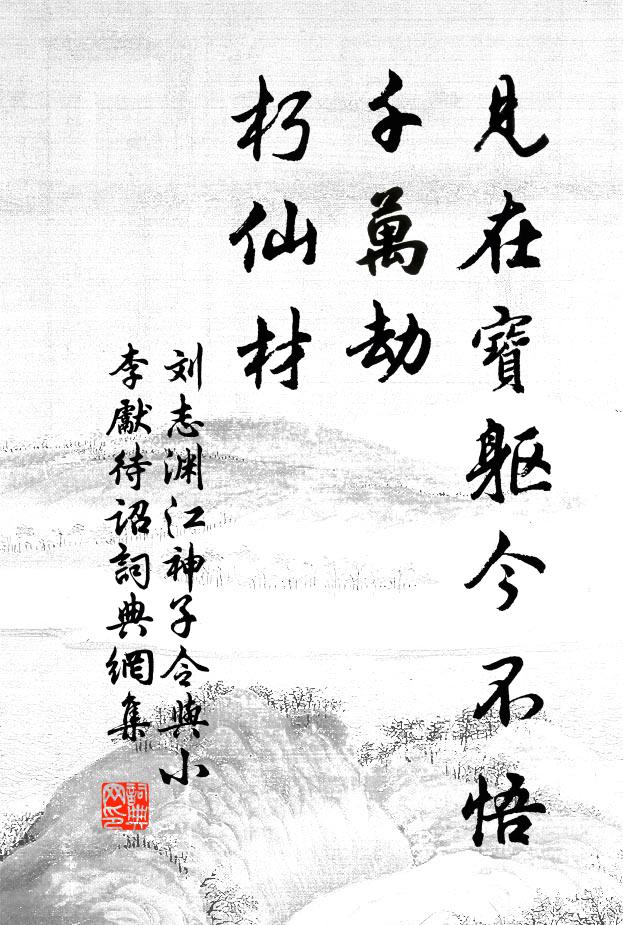 見在寶軀今不悟
千萬劫
朽仙材
刘志渊江神子令與小
李獻待詔詞典網集
詞典网印